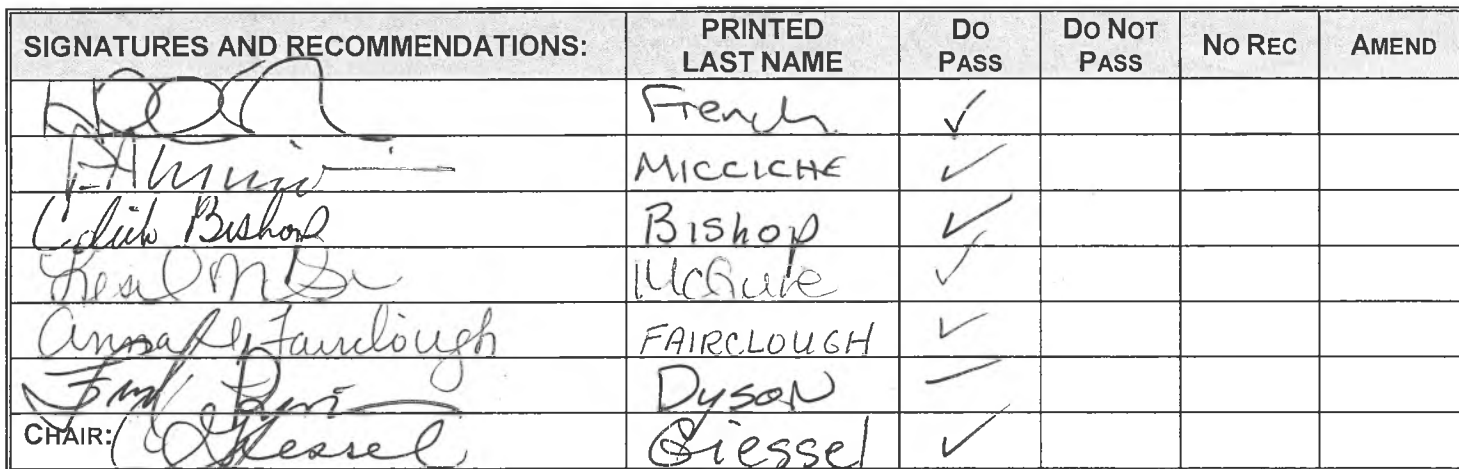 SIGNATURES AND RECOMMENDATIONS: PRINTED LAST NAME DO PASS DO NOT PASS NO REC AMEND
French ✓
MICCICHE ✓
Click Bishop Bishop ✓
Lesil McGuire ✓
Anna Fairclough FAIRCLOUGH ✓
Fred Dyson Dyson ✓
CHAIR: CGiessel Giessel ✓